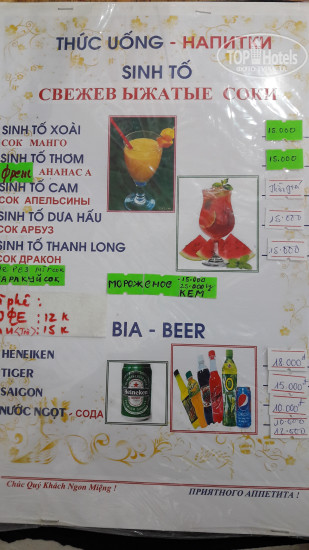 THỨC UỐNG - НАПИТКИ
TOP Hotels
SINH TỐ
СВЕЖЕВ ЫЖАТЫЕ СОКИ
SINH TỐ XOÀI
СОК МАНГО
15.000
SINH TỐ THƠM
фреш АНАНАС А
15.000
SINH TỐ CAM
СОК АПЕЛЬСИНЫ
SINH TỐ DƯA HẤU
СОК АРБУЗ
15.000
SINH TỐ THANH LONG
СОК ДРАКОН
15.000
МАРАКУЙ СОК
МОРОЖЕНОЕ - 15.000
KEM
phê :
ОФЕ : 12 к
15 к
BIA - BEER
HENEIKEN
18.000
TIGER
15.000
SAIGON
10.000
NƯỚC NGỌT - СОДА
10.000
12.000
Heineken
pepsi
Chúc Quý Khách Ngon Miệng !
ПРИЯТНОГО АППЕТИТА !